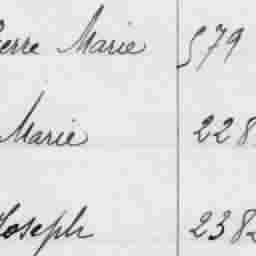 ierre Marie 579
Marie 228
Joseph 238